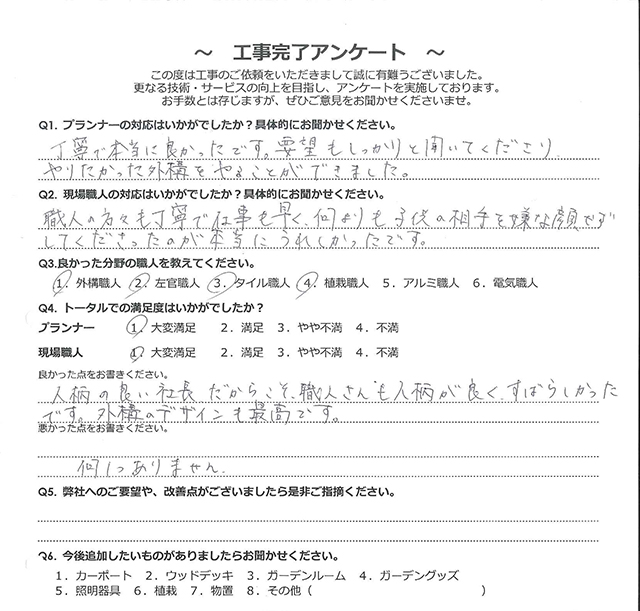 ～ 工事完了アンケート ～
この度は工事のご依頼をいただきまして誠に有難うございました。
更なる技術・サービスの向上を目指し、アンケートを実施しております。
お手数とは存じますが、ぜひご意見をお聞かせくださいませ。
Q1. プランナーの対応はいかがでしたか？具体的にお聞かせください。
丁寧で本当に良かったです。要望もしっかりと聞いてくださり
やりたかった外構をやることができました。
Q2. 現場職人の対応はいかがでしたか？具体的にお聞かせください。
職人の方々も丁寧で仕事も早く、何よりも子供の相手を嫌な顔せず
してくださったのが本当にうれしかったです。
Q3.良かった分野の職人を教えてください。
1. 外構職人 2. 左官職人 3. タイル職人 4. 植栽職人 5. アルミ職人 6. 電気職人
Q4. トータルでの満足度はいかがでしたか？
プランナー 1. 大変満足 2. 満足 3. やや不満 4. 不満
現場職人 1. 大変満足 2. 満足 3. やや不満 4. 不満
良かった点をお書きください。
人柄の良い社長だからこそ、職人さんも人柄が良く、すばらしかった
です。外構のデザインも最高です。
悪かった点をお書きください。
何1つありません。
Q5. 弊社へのご要望や、改善点がございましたら是非ご指摘ください。
Q6. 今後追加したいものがありましたらお聞かせください。
1. カーポート 2. ウッドデッキ 3. ガーデンルーム 4. ガーデングッズ
5. 照明器具 6. 植栽 7. 物置 8. その他（ ）